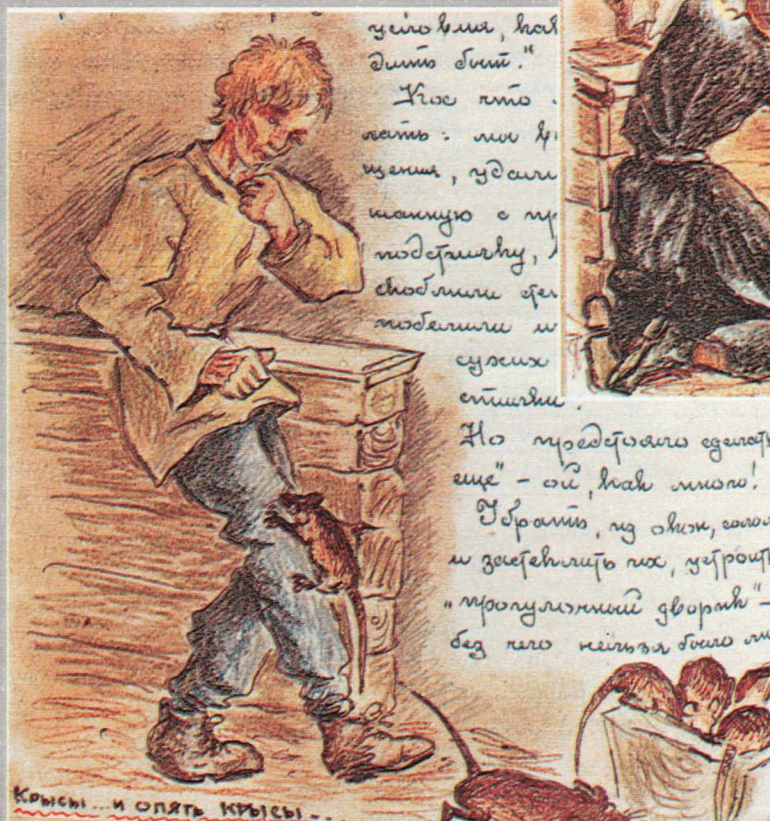 условия, как
дить быт."
Кое что
лать: мы в
щения, удали
шанную с
подстилку,
скоблили
побелили и
сухих
стилки.
Но предстояло сделать
ещё" – ой, как много!
Убрать, из окон, соло
и застеклить их, устроить
"прогулочный дворик" –
без чего нельзя было
Крысы... и опять крысы...